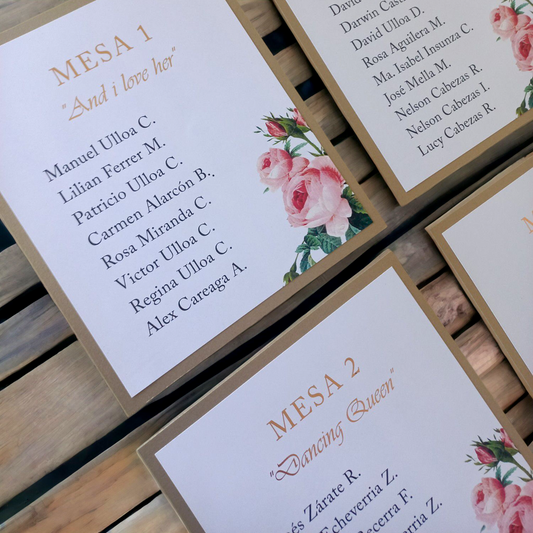 MESA 1
"And i love her"
Manuel Ulloa C.
Lilian Ferrer M.
Patricio Ulloa C.
Carmen Alarcón B.
Rosa Miranda C.
Victor Ulloa C.
Regina Ulloa C.
Alex Careaga A.
David
Darwin
David Ulloa D.
Rosa Aguilera M.
Ma. Isabel Insunza C.
José Mella M.
Nelson Cabezas R.
Nelson Cabezas I.
Lucy Cabezas R.
MESA 2
"Dancing Queen"
Zárate R.
Echeverria Z.
F.
Z.